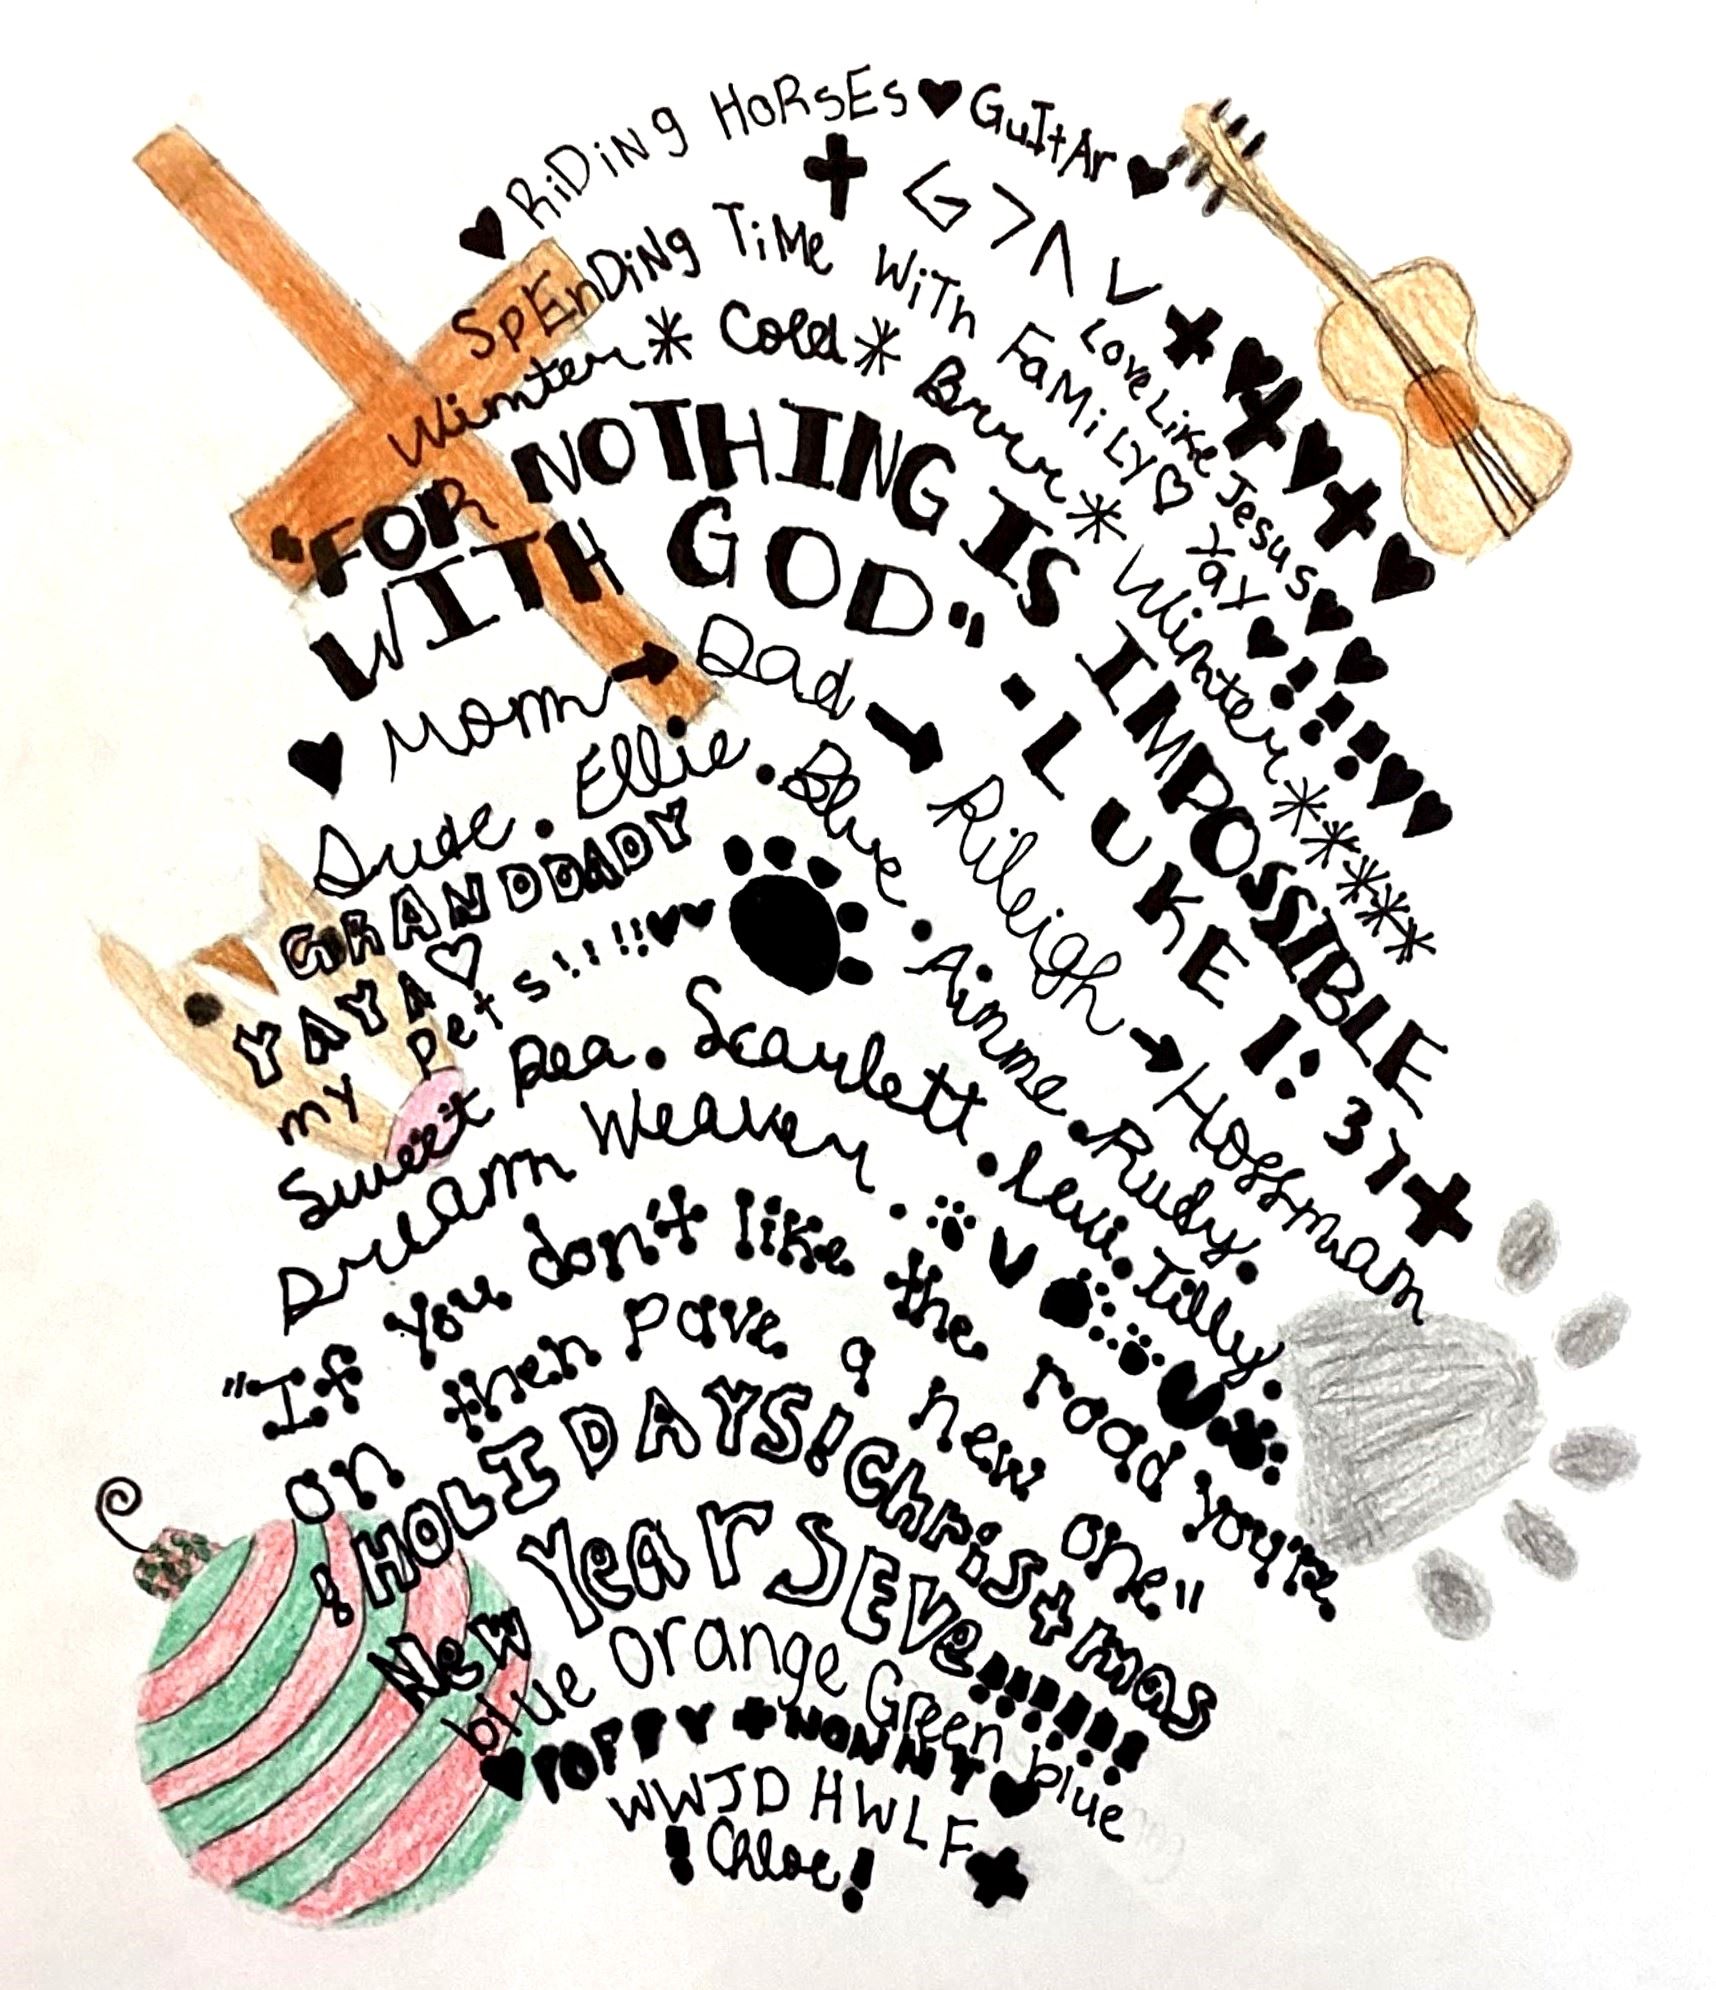 ♥ RiDiNg HoRsEs ♥ GuItAr ♥
G > ∧ ∨
SpEnDiNg TiMe WiTh FaMiLY ♡ YaY ♥ ! ! ! ♥ ♥
LoveLike Jesus ♥ ♥
Winter * Cold * Brrr * Winter * * * * *
"FOR NOTHING IS IMPOSSIBLE
WITH GOD" - LUKE 1:37
♥ Mom → Dad → Rileigh → Hossman
Dude . Ellie . Blue . Aimme . Rudy .
GRANDDADY
YAYA ♡
my pets !!!!! ♥ ♥
Sweet Pea . Scarlett . Levi . Tilly .
Dream Weaver .
"If you don't like the road you're
on then pave a new one"
! HOLIDAYS! Christmas
New Years Eve!!!!!!!
blue Orange Green blue
♥ POPPY + NONNY ♥
WWJD HWLF
! Chloe !